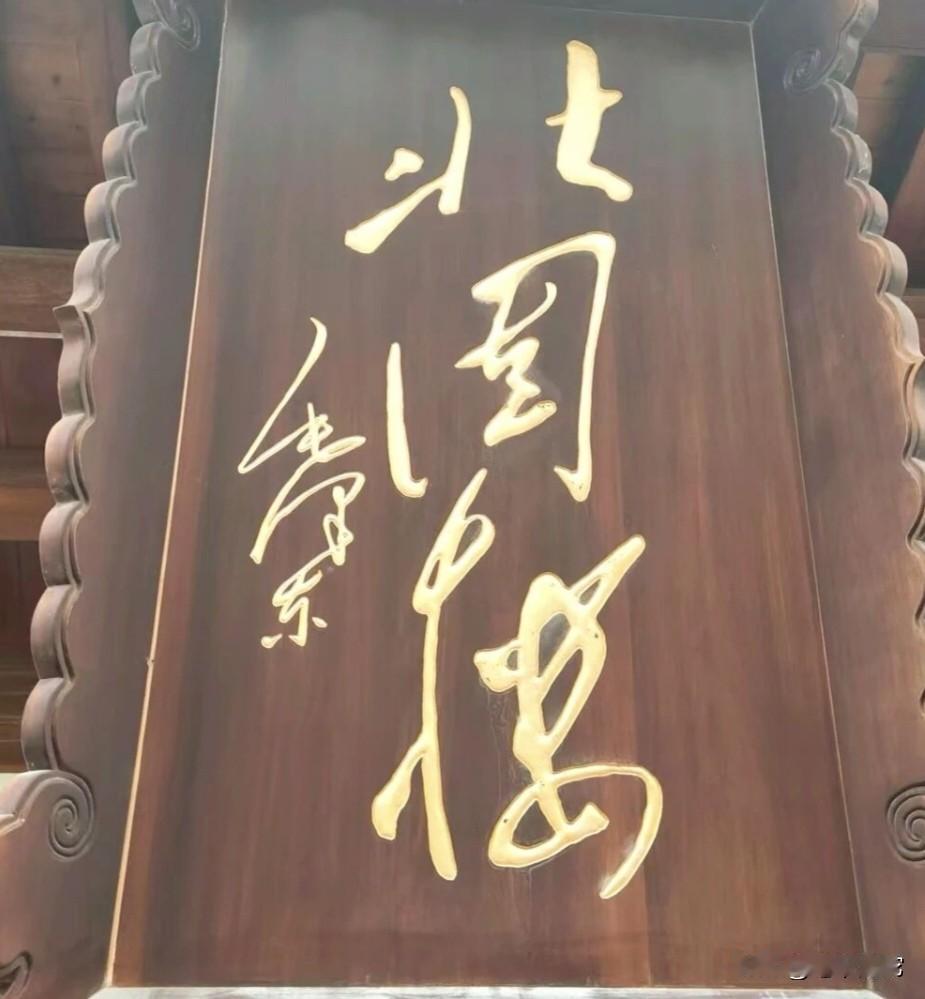 北固樓
毛泽东